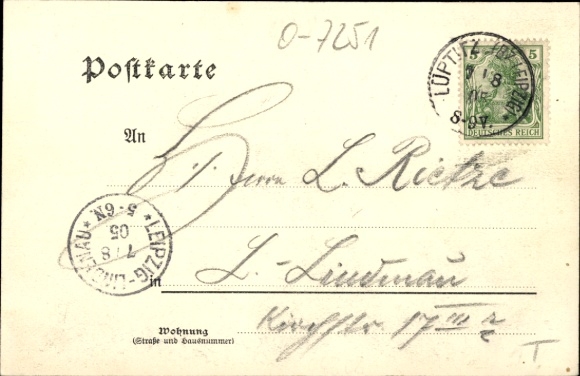 O-7251
Postkarte
5 5
DEUTSCHES REICH
LÜPTITZ (BZ. LEIPZIG)
7 8
05
8-9V.
An
Herrn L. Rietze
LEIPZIG-LINDENAU
5-6N
7 8
05
in
L.-Lindenau
Wohnung
(Straße und Hausnummer)
Kirchstr 17 III